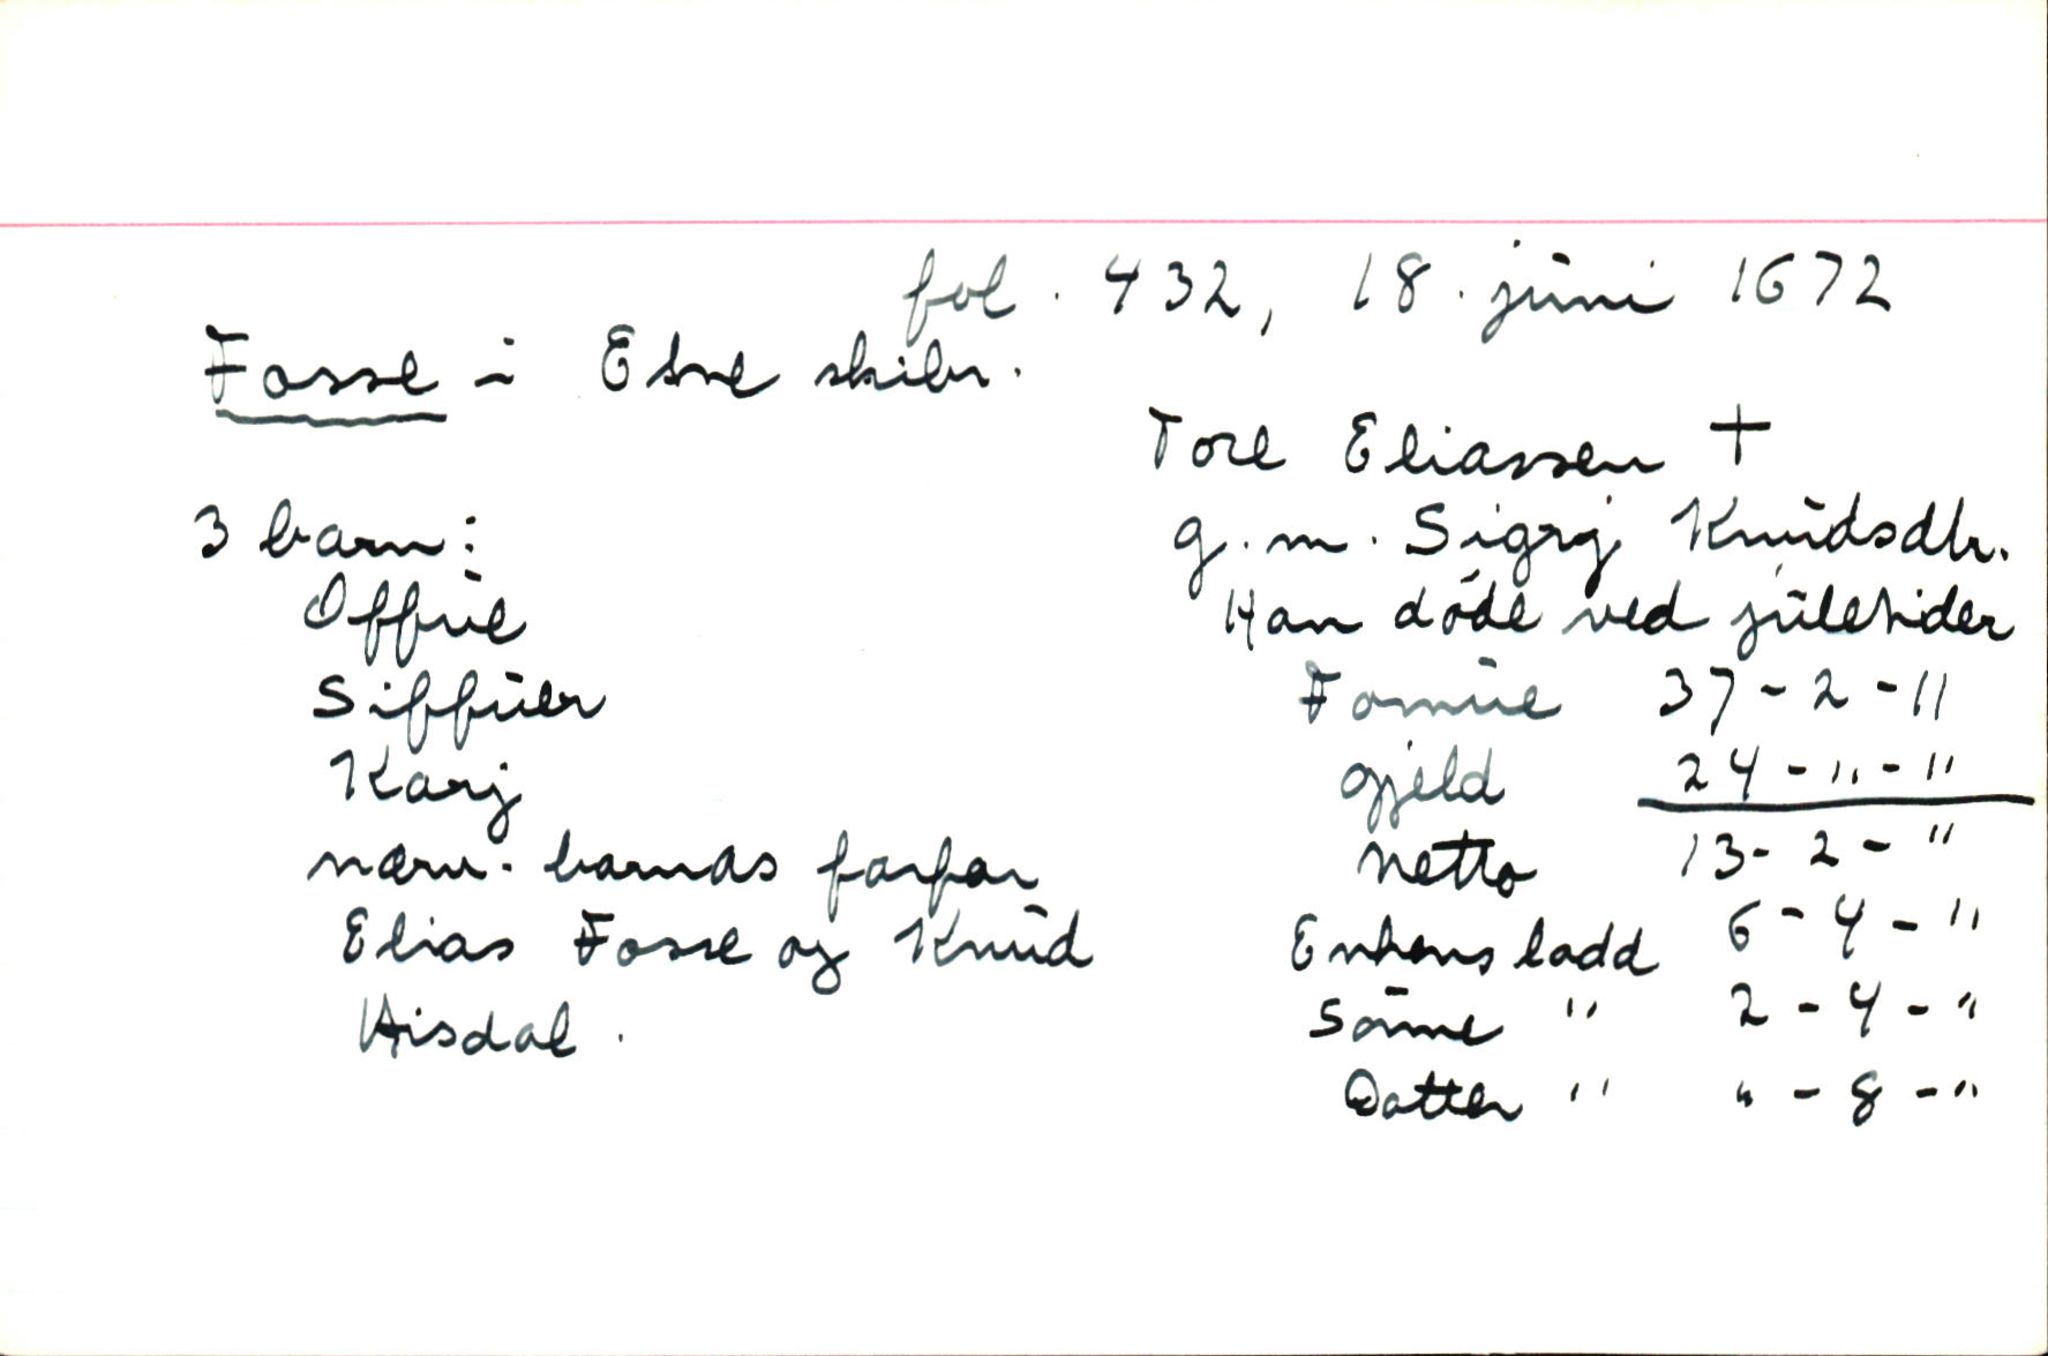 fol. 432, 18. juni 1672
Fosse i Etne skibr.
Tore Eliassen +
g.m. Sigrj Knudsdtr.
Han døde ved juletider
3 barn:
Offue
Siffuer
Karj
nærv. barnas farfar
Elias Fosse og Knud
Hisdal.
Formue 37 - 2 - 11
gjeld 24 - " - "
Netto 13 - 2 - "
Enkens lodd 6 - 4 - "
Sønne " 2 - 4 - "
Datter " " - 8 - "